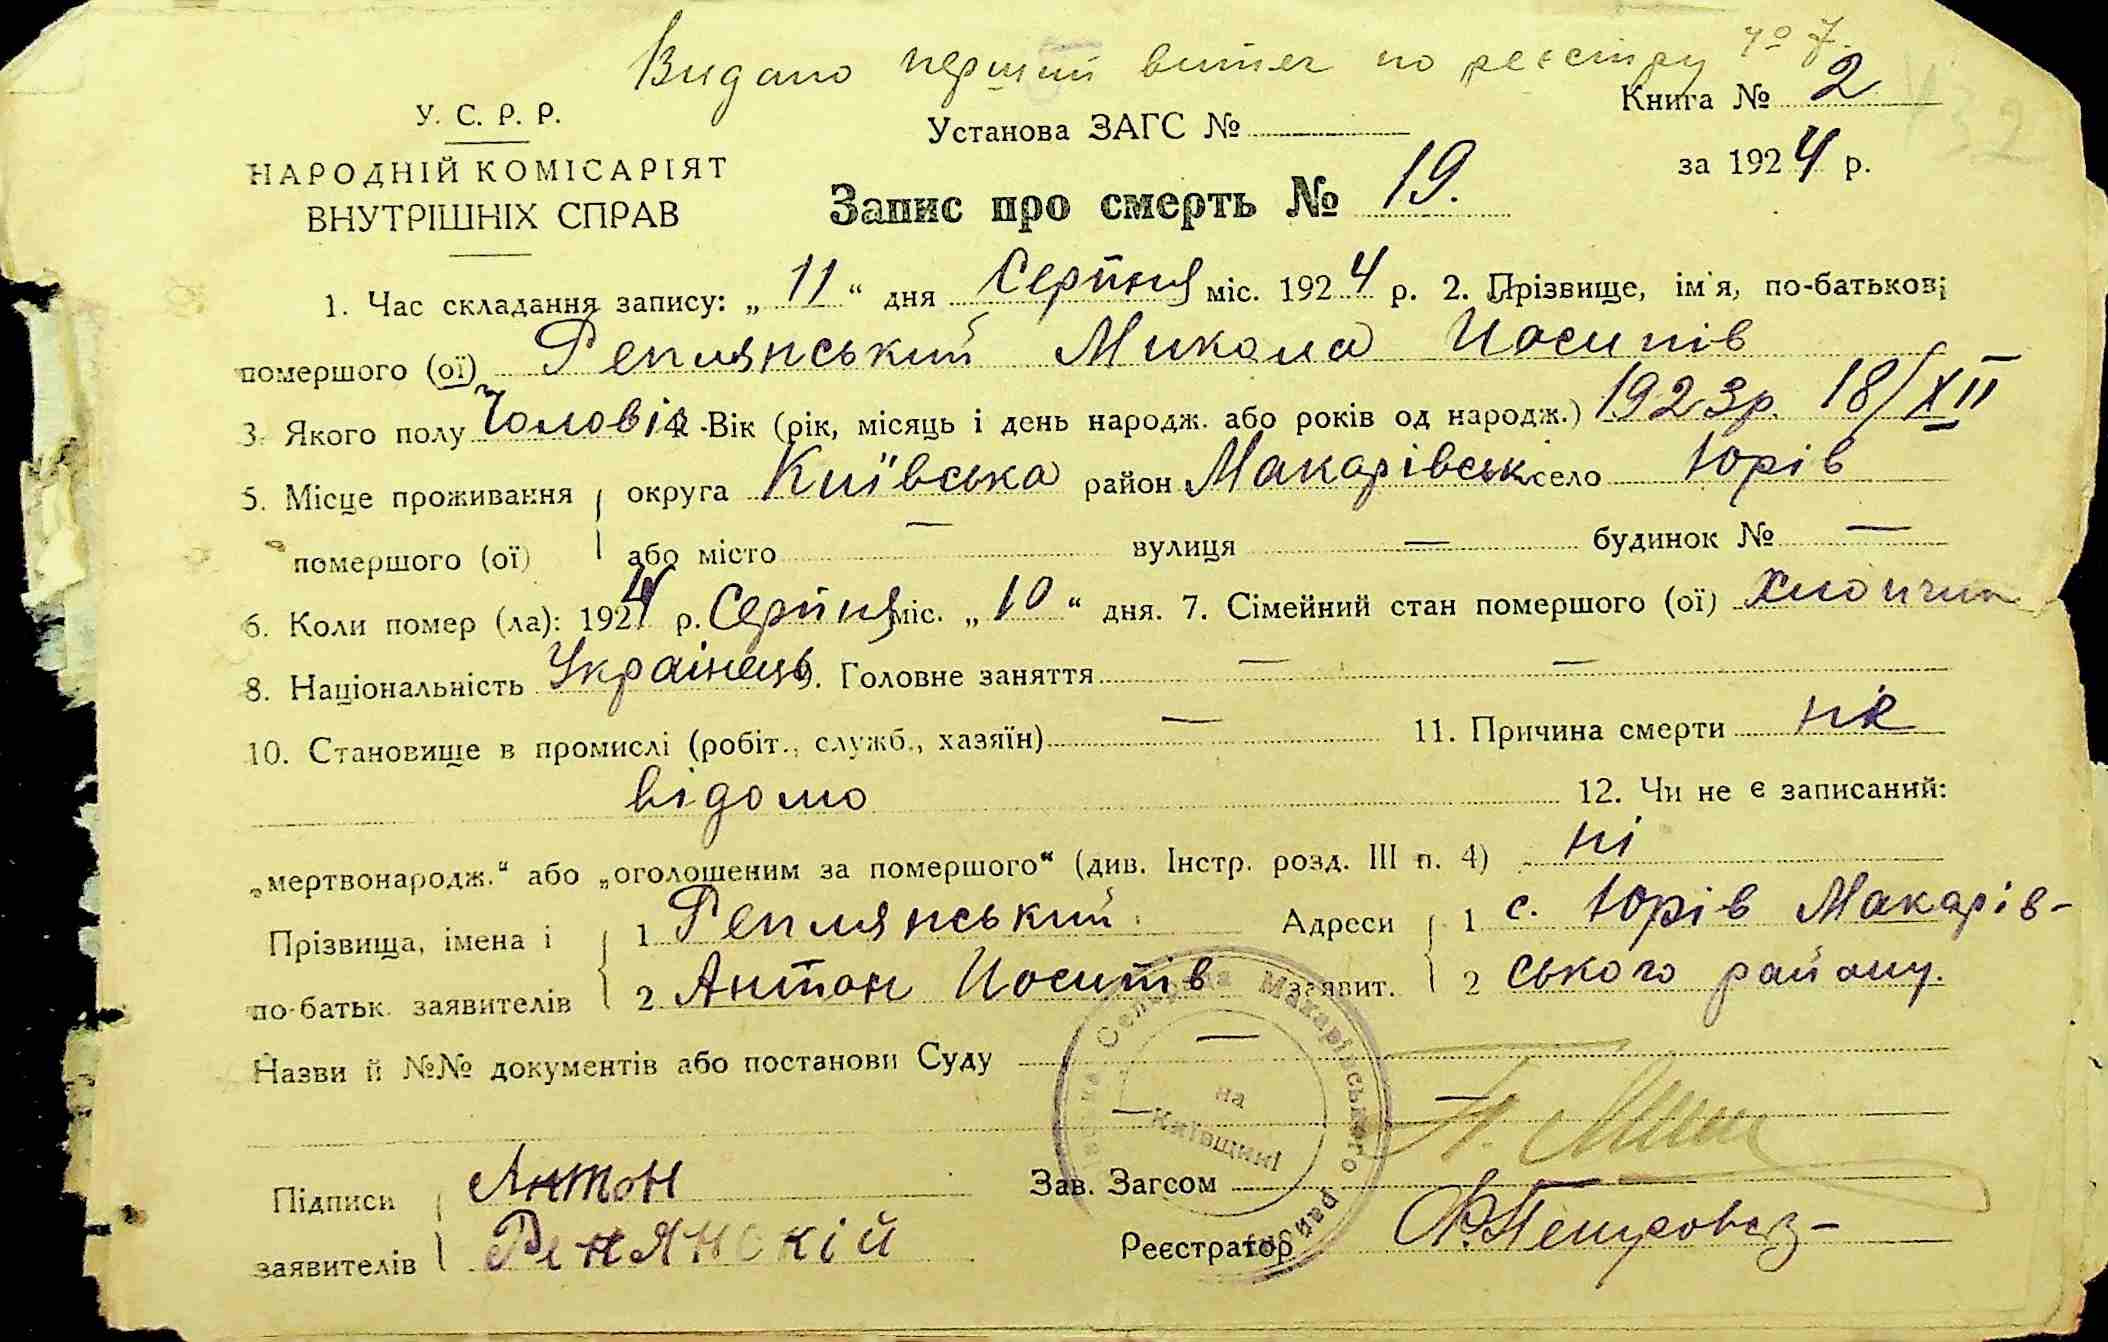 Видано перший витяг по реєстру № 7.
У. С. Р. Р.
НАРОДНІЙ КОМІСАРІЯТ
ВНУТРІШНІХ СПРАВ
Установа ЗАГС №
Книга № 2
за 1924 р.
Запис про смерть № 19.
1. Час складання запису: „11“ дня Серпня міс. 1924 р. 2. Прізвище, ім'я, по-батькові
помершого (ої) Реплянський Микола Йосипів
3. Якого полу Чоловіч 4. Вік (рік, місяць і день народж. або років од народж.) 1923р. 18/XII
5. Місце проживання округа Київська район Макарівськ село Юрів
помершого (ої) або місто — вулиця — будинок № —
6. Коли помер (ла): 1924 р. Серпня міс. „10“ дня. 7. Сімейний стан помершого (ої) хлопчик
8. Національність Украінець 9. Головне заняття — —
10. Становище в промислі (робіт., служб., хазяїн) — 11. Причина смерти не
відомо 12. Чи не є записаний:
„мертвонародж.“ або „оголошеним за помершого“ (див. Інстр. розд. III п. 4) ні
Прізвища, імена і 1 Реплянський Адреси 1 с. Юрів Макарів-
по-батьк. заявителів 2 Антон Йосипів заявит. 2 ського району.
Назви й №№ документів або постанови Суду —
—
Підписи Антон Зав. Загсом
заявителів Ренянскій Реєстратор
Сельрада Макарівського району
на Київщині